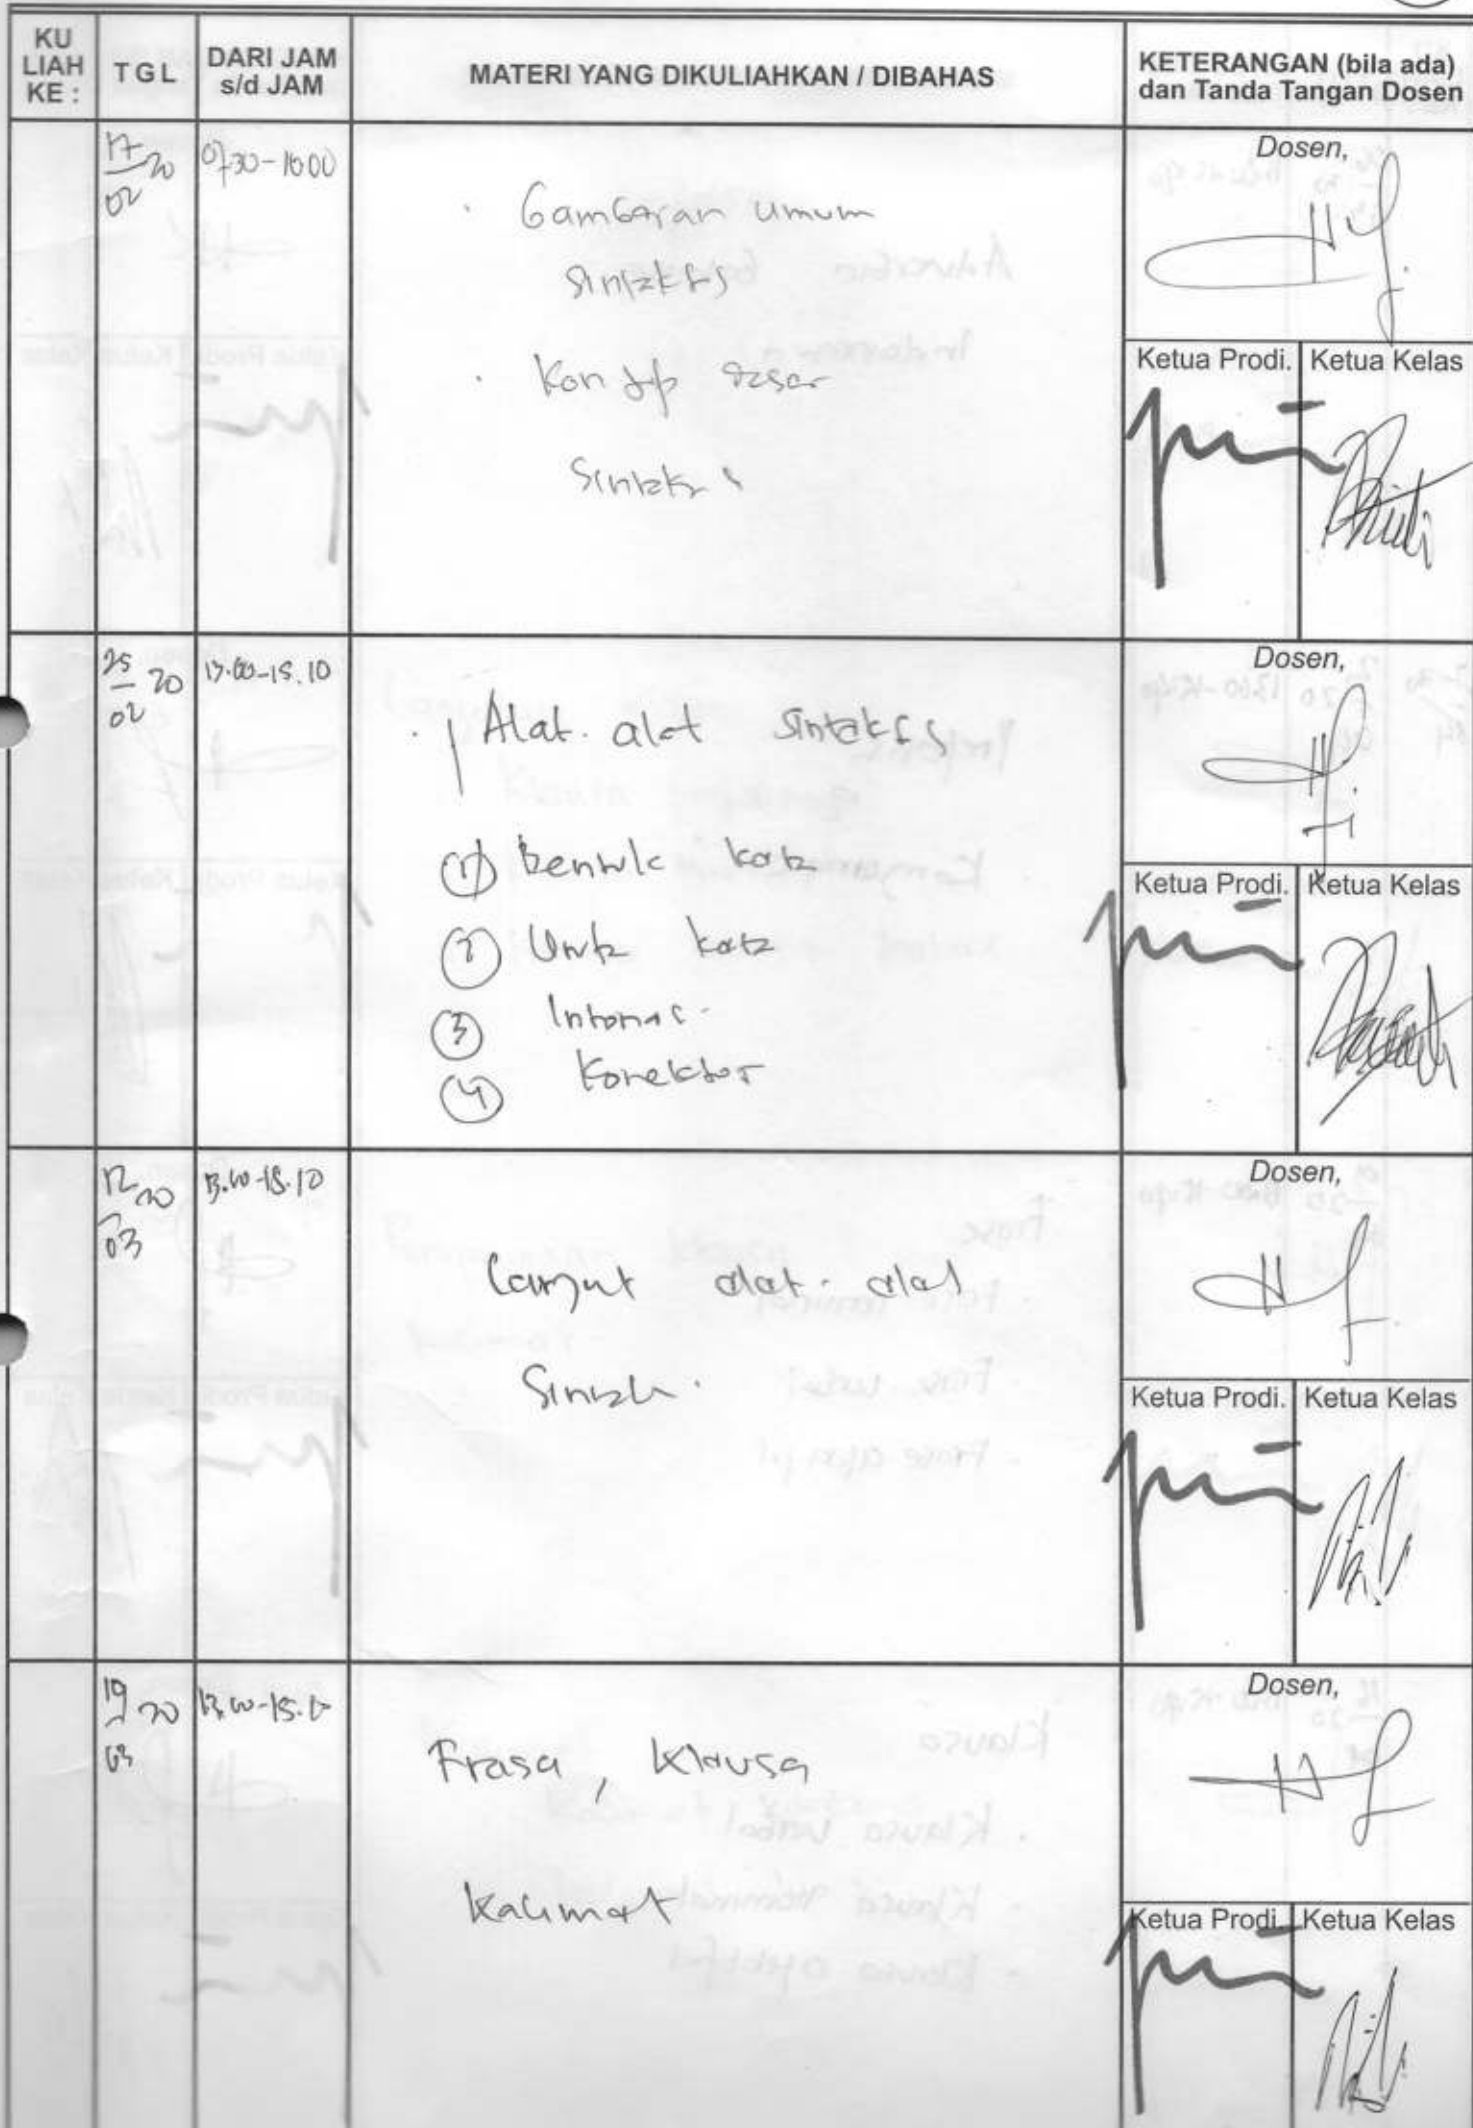 KU LIAH KE :
TGL
DARI JAM s/d JAM
MATERI YANG DIKULIAHKAN / DIBAHAS
KETERANGAN (bila ada) dan Tanda Tangan Dosen
17/02 20
0730-1000
· Gambaran umum
Sintaksis
· Konsep dasar
Sintaksis
Dosen,
Ketua Prodi.
Ketua Kelas
25/02 20
13.00-15.10
· Alat-alat sintaksis
(1) Bentuk kata
(2) Urutan kata
(3) Intonasi
(4) Konektor
Dosen,
Ketua Prodi.
Ketua Kelas
12/03 20
13.00-15.10
Lanjut alat-alat
Dosen,
Ketua Prodi.
Ketua Kelas
19/03 20
13.00-15.10
Frasa, Klausa
Kalimat
Dosen,
Ketua Prodi.
Ketua Kelas